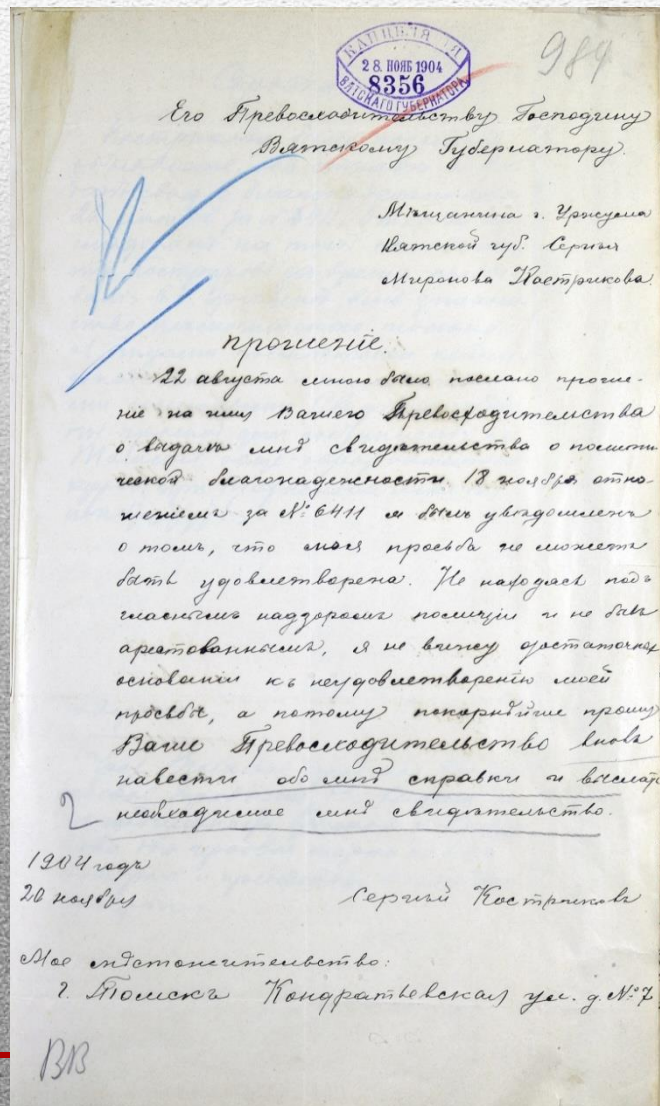 КАНЦЕЛЯРИЯ
28 НОЯБ 1904
8356
ВЯТСКАГО ГУБЕРНАТОРА
984
Его Превосходительству Господину
Вятскому Губернатору.
Мѣщанина г. Уржума
Вятской губ. Сергѣя
Миронова Кострикова.
прошеніе.
22 августа мною было послано проше-
ніе на имя Вашего Превосходительства
о выдачѣ мнѣ свидѣтельства о полити
ческой благонадежности. 18 ноября отно-
шеніемъ за № 6411 я былъ увѣдомленъ
о томъ, что моя просьба не можетъ
быть удовлетворена. Не находясь подъ
гласнымъ надзоромъ полиціи и не бывъ
арестованнымъ, я не вижу достаточныхъ
основаніи къ неудовлетворенію моей
просьбы, а потому покорнѣйше прошу
Ваше Превосходительство вновь
навести обо мнѣ справки и выслать
необходимое мнѣ свидѣтельство.
1904 годъ
20 ноября
Сергѣй Костриковъ
Мое мѣстожительство:
г. Томскъ Кондратьевская ул. д. № 7
ВВ